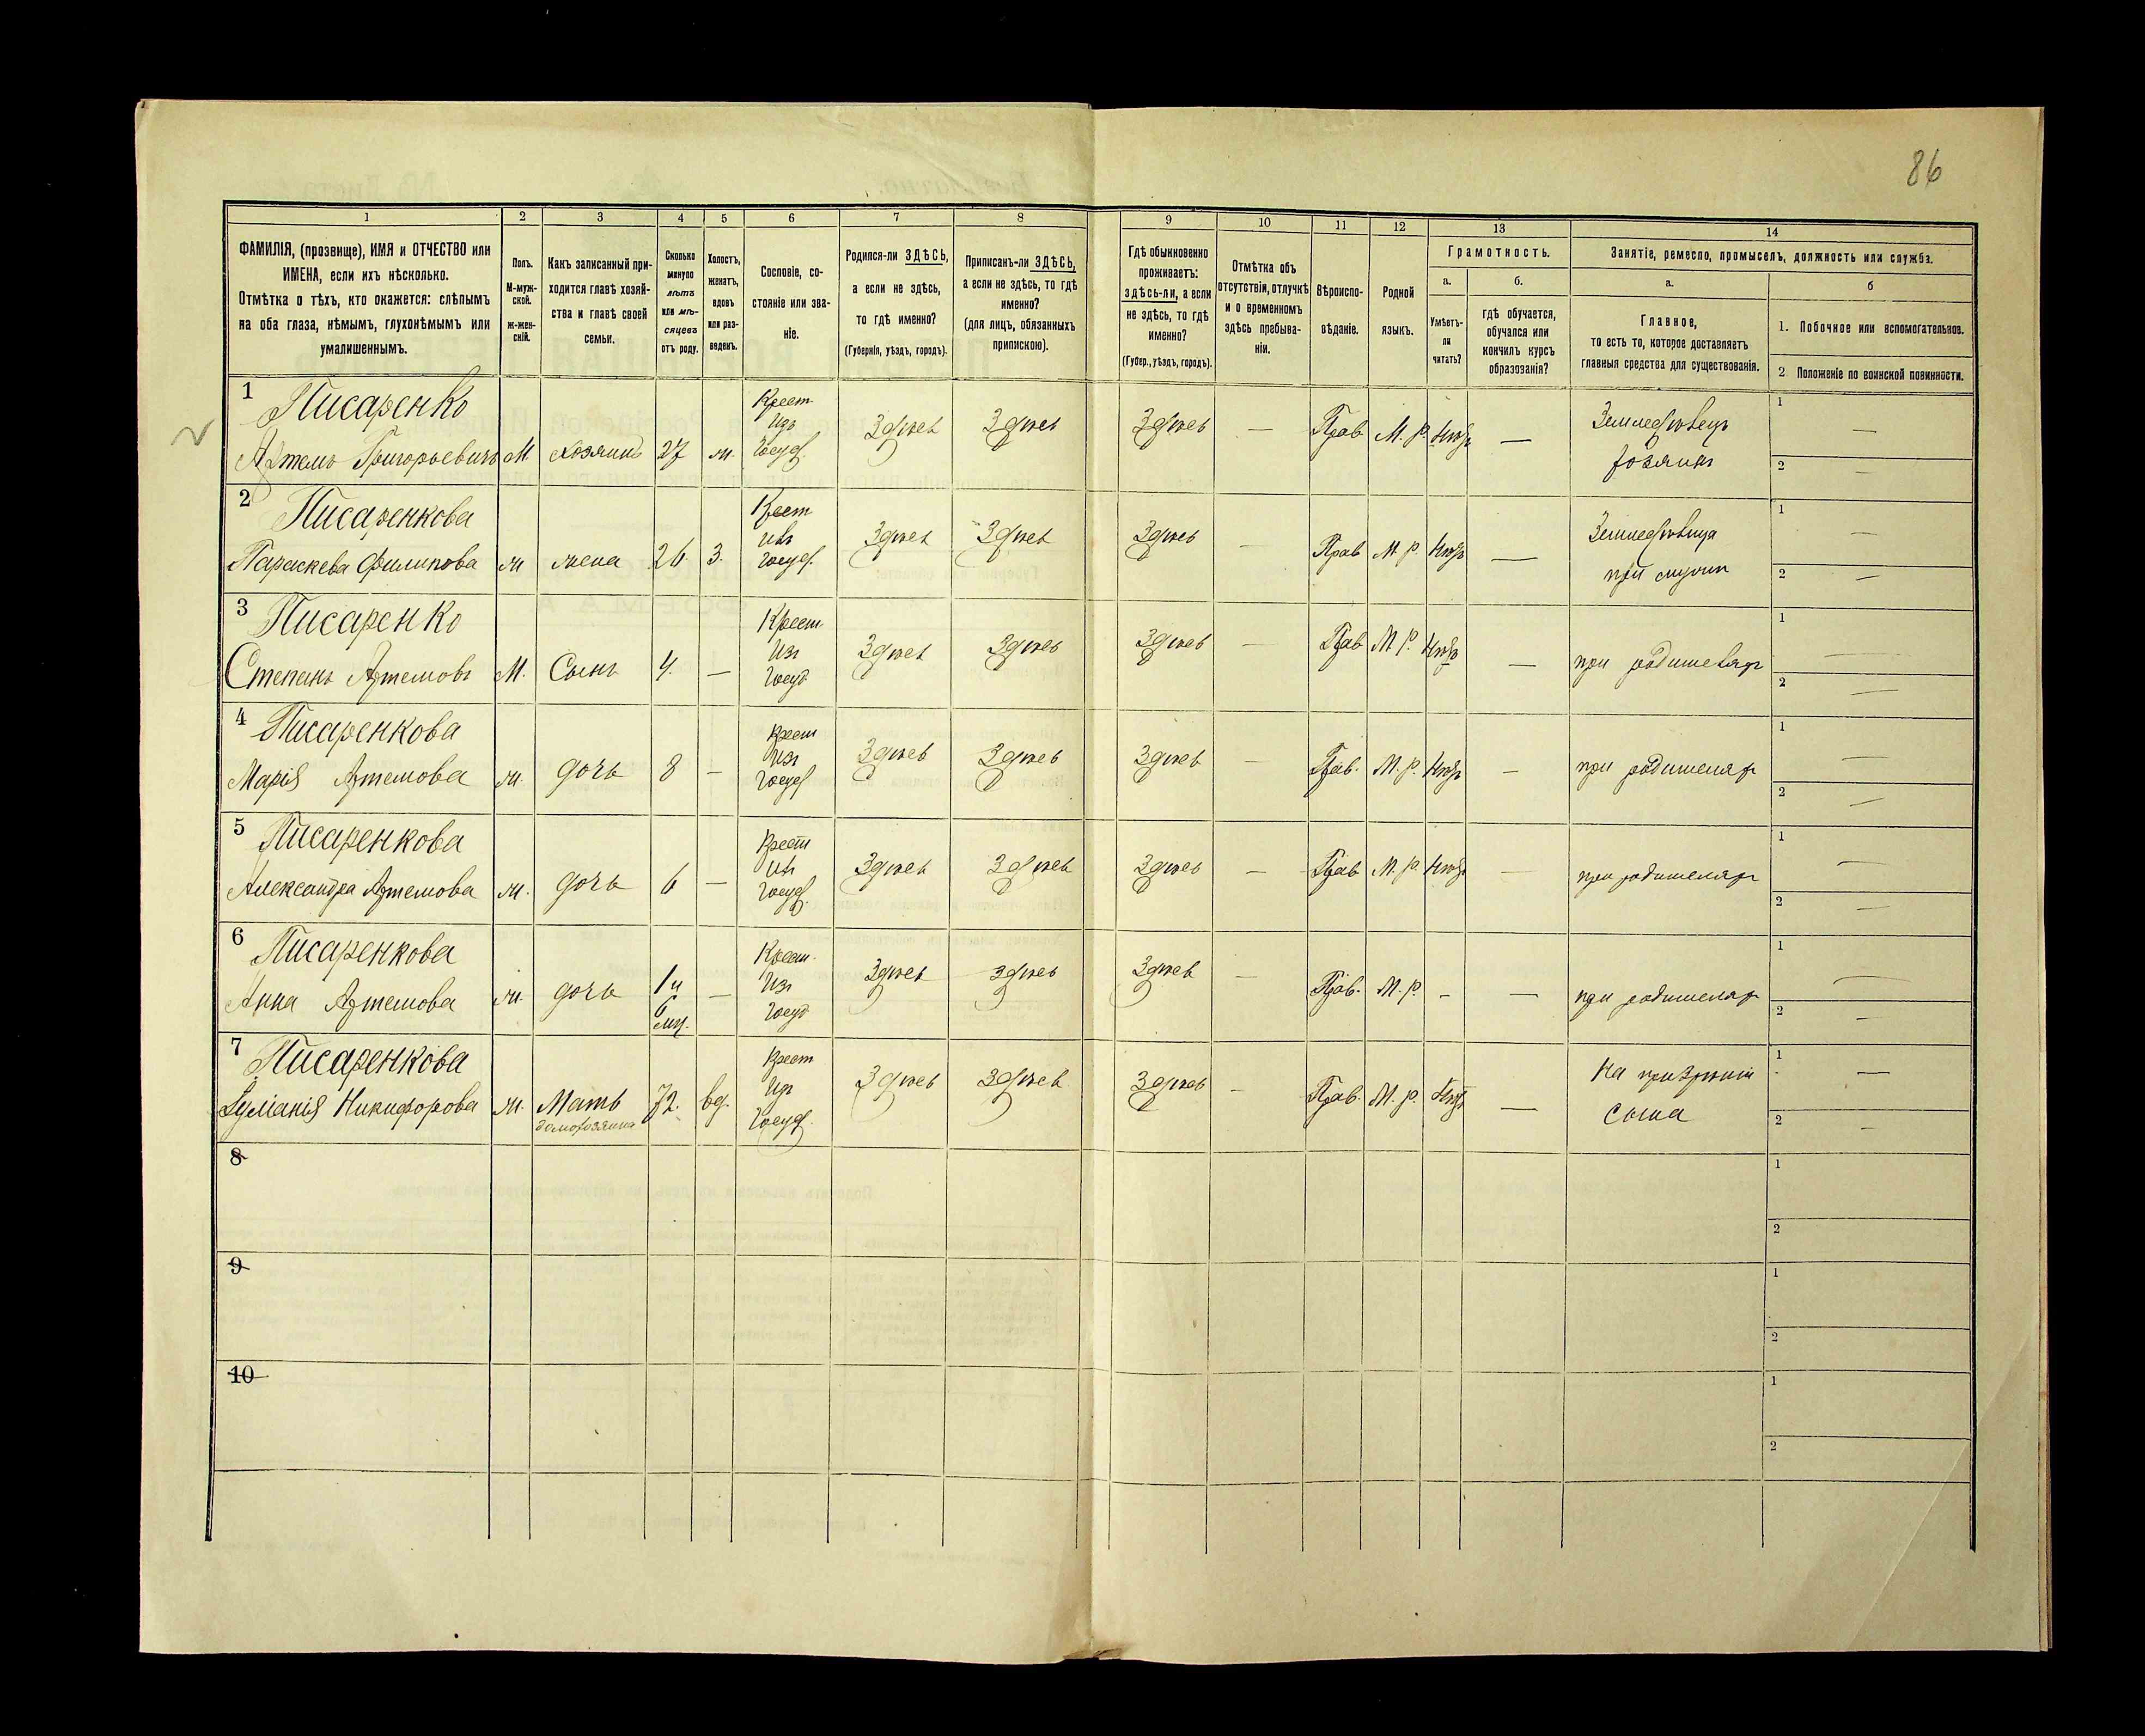 86
1 2 3 4 5 6 7 8 9 10 11 12 13 14
ФАМИЛІЯ, (прозвище), ИМЯ и ОТЧЕСТВО или
ИМЕНА, если ихъ нѣсколько.
Отмѣтка о тѣхъ, кто окажется: слѣпымъ
на оба глаза, нѣмымъ, глухонѣмымъ или
умалишеннымъ.
Полъ.
М-муж-
ской.
ж-жен-
скій.
Какъ записанный при-
ходится главѣ хозяй-
ства и главѣ своей
семьи.
Сколько
минуло
лѣтъ
или мѣ-
сяцевъ
отъ роду.
Холостъ,
женатъ,
вдовъ
или раз-
веденъ.
Сословіе, со-
стояніе или зва-
ніе.
Родился-ли ЗДѢСЬ,
а если не здѣсь,
то гдѣ именно?
(Губернія, уѣздъ, городъ).
Приписанъ-ли ЗДѢСЬ,
а если не здѣсь, то гдѣ
именно?
(для лицъ, обязанныхъ
припискою).
Гдѣ обыкновенно
проживаетъ:
здѣсь-ли, а если
не здѣсь, то гдѣ
именно?
(Губер., уѣздъ, городъ).
Отмѣтка объ
отсутствіи, отлучкѣ
и о временномъ
здѣсь пребыва-
ніи.
Вѣроиспо-
вѣданіе.
Родной
языкъ.
Грамотность.
а.
Умѣетъ-
ли
читать?
б.
гдѣ обучается,
обучался или
кончилъ курсъ
образованія?
Занятіе, ремесло, промыселъ, должность или служба.
а.
Главное,
то есть то, которое доставляетъ
главныя средства для существованія.
б
1. Побочное или вспомогательное.
2 Положеніе по воинской повинности.
1 Писаренко Крест. 1
Артемъ Григорьевичъ М. хозяинъ 27 ж. Госуд. Здѣсь Здѣсь Здѣсь — Прав М. р. — Земледѣлецъ —
хозяинъ 2 —
2 Писаренкова Крест 1 —
Параскева Филипова ж жена 26 з. Госуд. Здѣсь Здѣсь Здѣсь — Прав М. р. — Земледѣлица
при мужѣ 2 —
3 Писаренко Крест. изъ 1 —
Степанъ Артемовъ М. Сынъ 4. — Госуд Здѣсь Здѣсь Здѣсь — Прав М. р. — при 2 —
4 Писаренкова Крест изъ 1 —
Марія Артемова ж. дочь 8 — Госуд Здѣсь Здѣсь Здѣсь — Прав. М. р. — при родителяхъ 2 —
5 Писаренкова Крест 1 —
Александра Артемова ж. дочь 6 — Госуд. Здѣсь Здѣсь Здѣсь — Прав М. р. — при родителяхъ 2 —
6 Писаренкова Крест. изъ 1 —
Анна Артемова ж. дочь 1 и 6 — Госуд Здѣсь Здѣсь Здѣсь — Прав. М. р. - — при родителяхъ 2 —
7 Писаренкова Крест На призрѣніи 1 —
Никифорова ж. Мать 72. вд. Госуд. Здѣсь Здѣсь Здѣсь — Прав. М. р. — сына 2 —
домохозяина
8 1
2
9 1
2
10 1
2